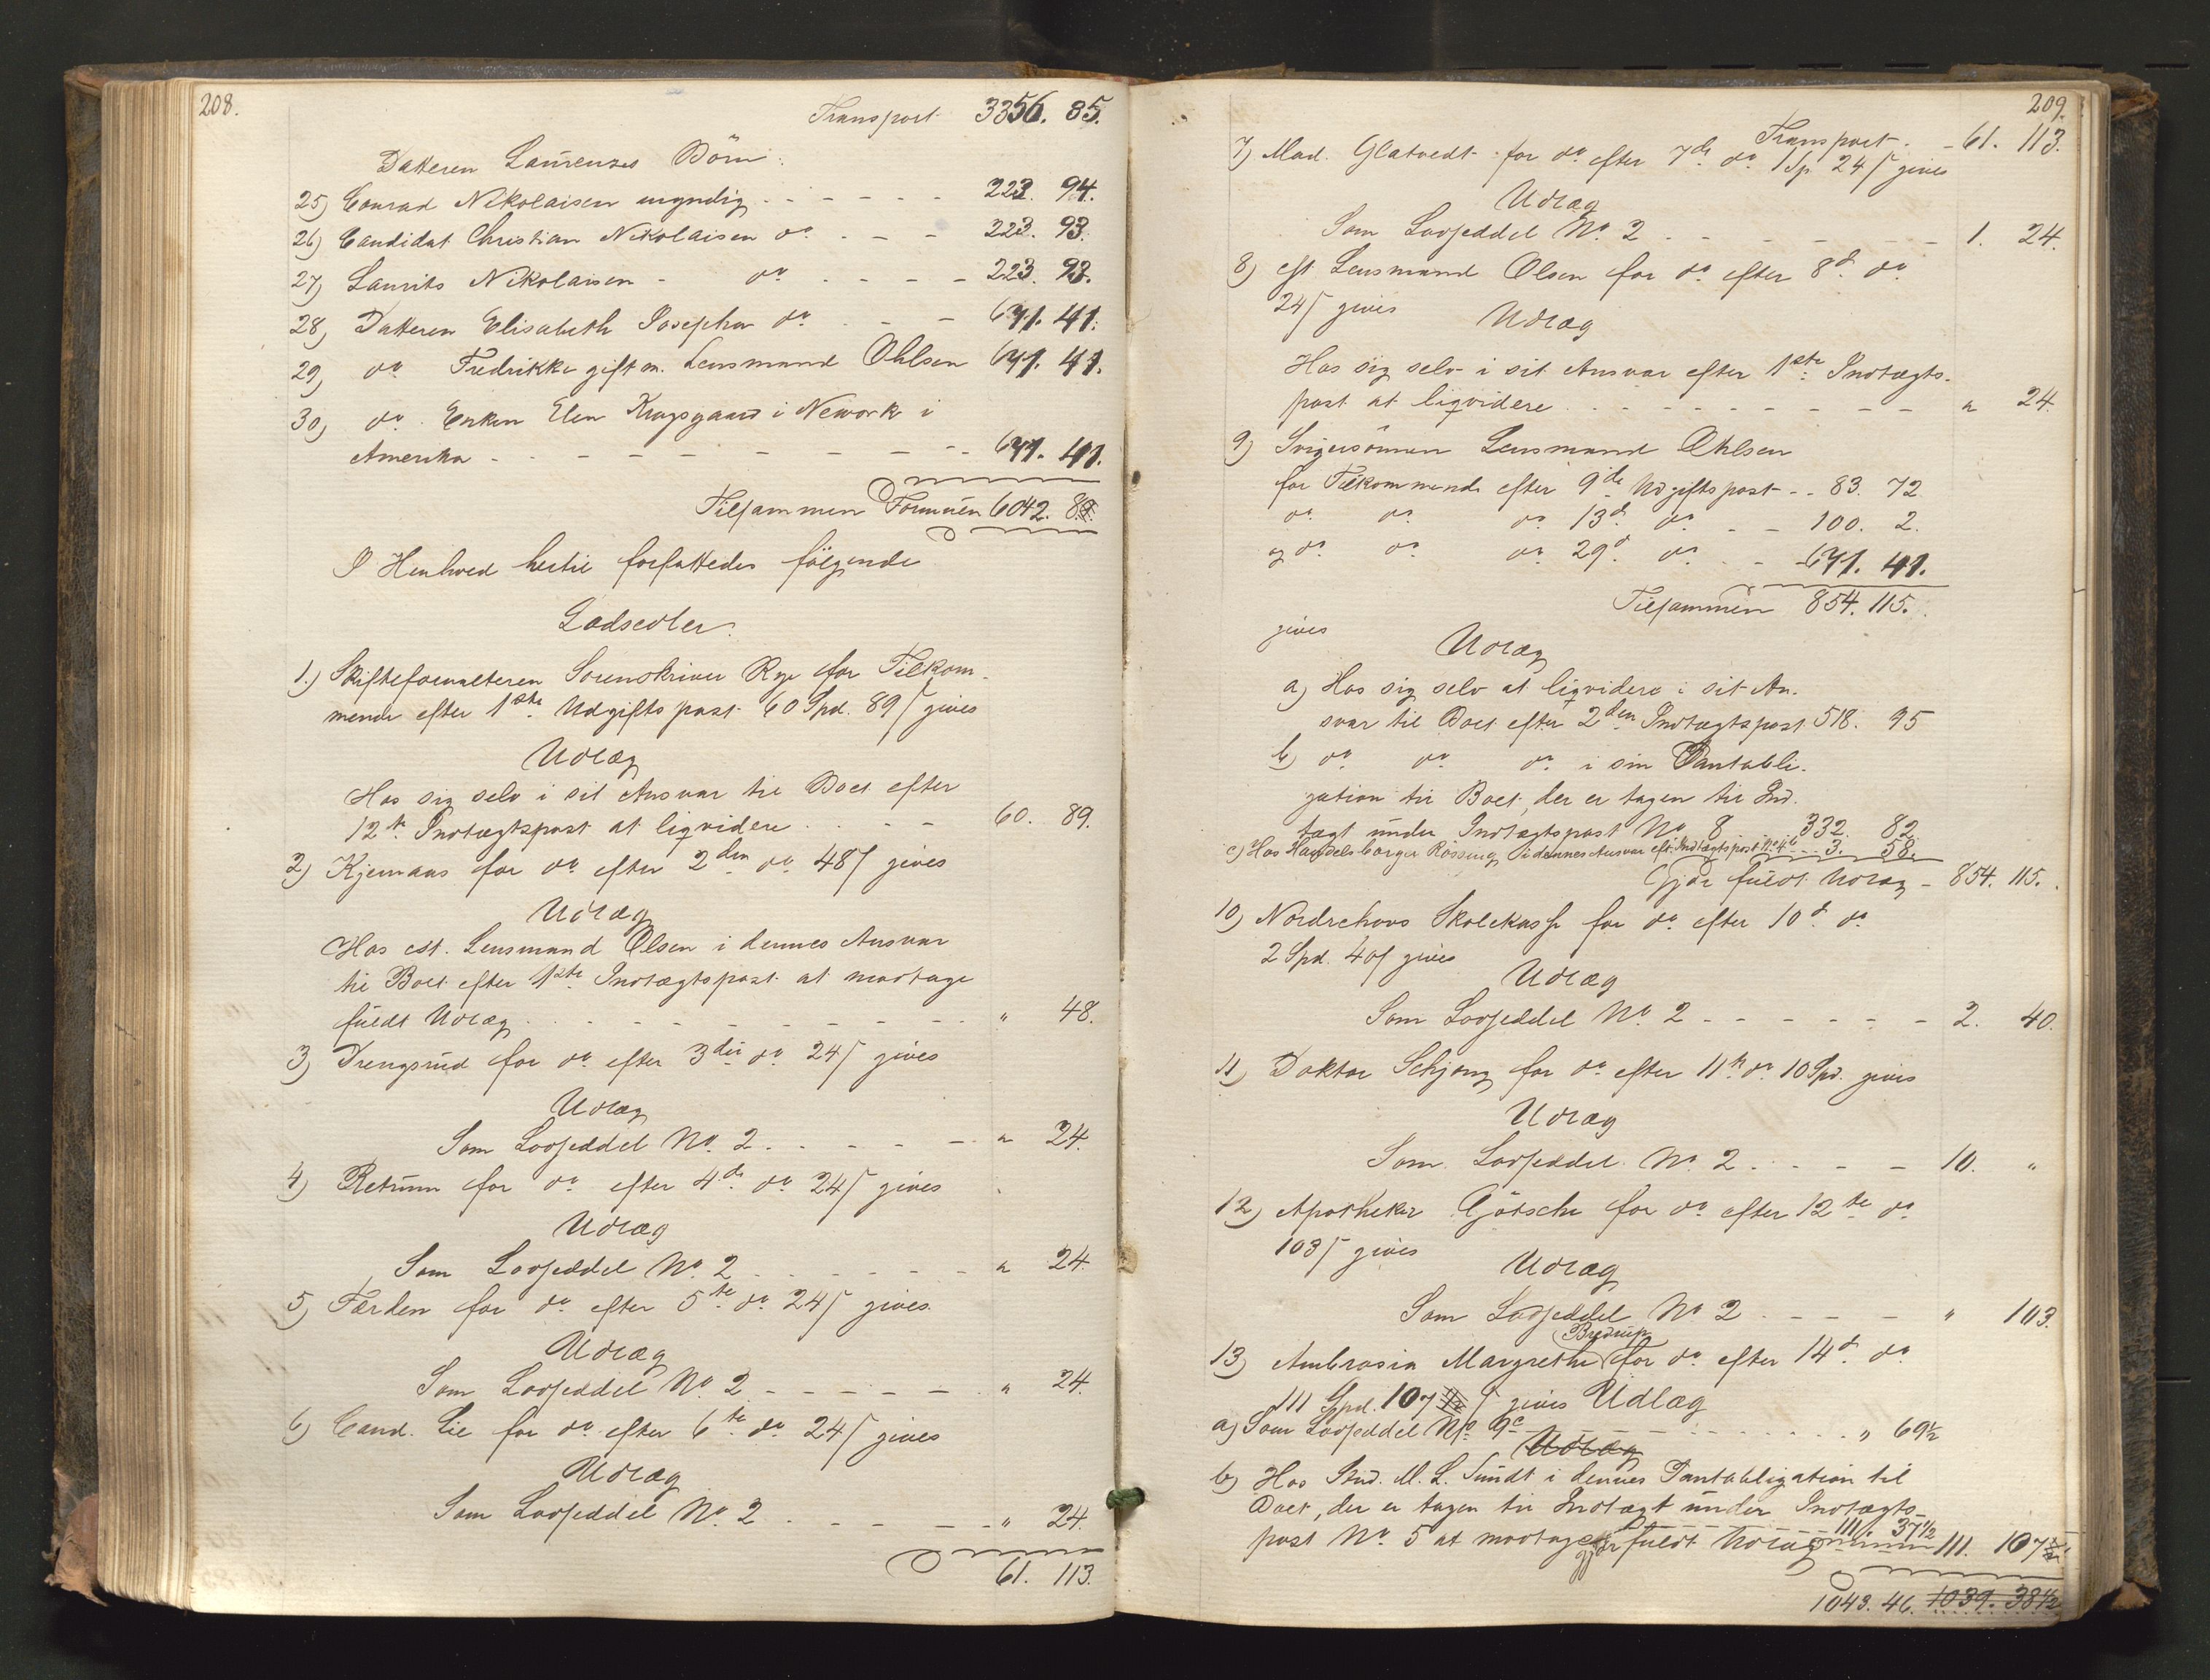 208.
Transport 3356. 85.
Datteren Laurenzes Börn:
25) Conrad Nikolaisen myndig - - - - - - 223. 94.
26) Candidat Christian Nikolaisen do - - - 223. 93.
27) Laurits Nikolaisen - do - - - - 223. 93.
28) Datteren Elisabeth Josepha do - - 671. 41.
29) do Fredrikke gift m. Lensmand Ohlsen 671. 41.
30) do Enken Elen Kragsgaard i Nework i
Amerika - - - - - - - - - 671. 41.
Tilsammen Formuen 6042. 88.
I Henhold hertil forfattedes følgende
Lodsedler.
1.) Skifteforvalteren Sorenskriver Rye for Tilkom-
mende efter 1ste Udgiftspost 60 Spd. 89 ʃ gives
Udlæg
Hos sig selv i sit Ansvar til Boet efter
12te Indtægtspost at liqvidere - - - 60. 89.
2) Kjemaas for do efter 2den do 48 ʃ gives
Udlæg
Hos cst. Lensmand Olsen i dennes Ansvar
til Boet efter 1ste Indtægtspost at modtage
fuldt Udlæg - - - - - - - - - " 48.
3) Trengsrud for do efter 3die do 24 ʃ gives
Udlæg
Som Lodseddel No 2 - - - - - " 24.
4) Retrum for do efter 4de do 24 ʃ gives
Udlæg
Som Lodseddel No 2 - - - - - - " 24.
5) Færden for do efter 5te do 24 ʃ gives
Udlæg
Som Lodseddel No 2 - - - - - - " 24.
6) Cand. Lie for do efter 6te do 24 ʃ gives
Udlæg
Som Lodseddel No 2 - - - - - " 24.
61. 113.
209.
Transport - 61. 113.
7) Mad. Glatvedt for do efter 7de do 1 Sp 24 ʃ gives
Udlæg
Som Lodseddel No 2 - - - - - - - 1. 24.
8) cst. Lensmand Olsen for do efter 8de do
24 ʃ gives
Udlæg
Hos sig selv i sit Ansvar efter 1ste Indtægts-
post at liqvidere - - - - - - - - " 24.
9) Svigersönnen Lensmand Ohlsen
for Tilkommende efter 9de Udgiftspost - - 83. 72
do do do 13de do - - 100. 2.
og do do do 29de do - - 671. 41.
Tilsammen 854. 115.
gives
Udlæg
a) Hos sig selv at liqvidere i sit An-
svar til Boet efter 2den Indtægtspost 518. 95
b) do do do i sin Pantobli-
gation til Boet, der er tagen til Ind-
tægt under Indtægtspost No 8 332. 82.
c) Hos Handelsborger Rössing i dennes Ansvar eft. Indtægtspost No 4 b - - 3. 58.
Gjør fuldt Udlæg - 854. 115.
10) Nordrehovs Skolekasse for do efter 10de do
2 Spd. 40 ʃ gives
Udlæg
Som Lodseddel No 2 - - - - - - 2. 40.
11) Doktor Schjong for do efter 11te do 10 Spd. gives
Udlæg
Som Lodseddel No 2 - - - - 10. "
12) Apotheker Götsche for do efter 12te do
103 ʃ gives
Udlæg
Som Lodseddel No 2 - - - - " 103.
Bredrup
13) Ambrosia Margrethe for do efter 14de do
111 Spd. 107 ʃ gives Udlæg
a) Som Lodseddel No 9c - - - - - - - - " 69½
Udlæg
b) Hos Stud. M. L. Sundt i dennes Pantobligation til
Boet, der er tagen til Indtægt under Indtægts-
post No 5 at modtage - - - - 111. 37½
gjør fuldt Udlæg 111. 107
1043. 46. 1039. 38½